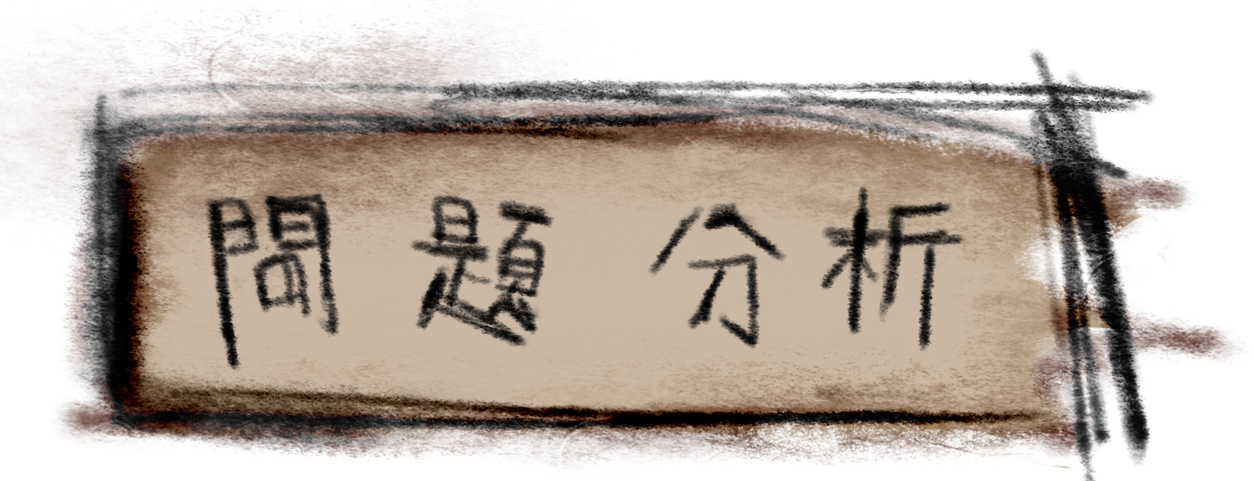 問題分析